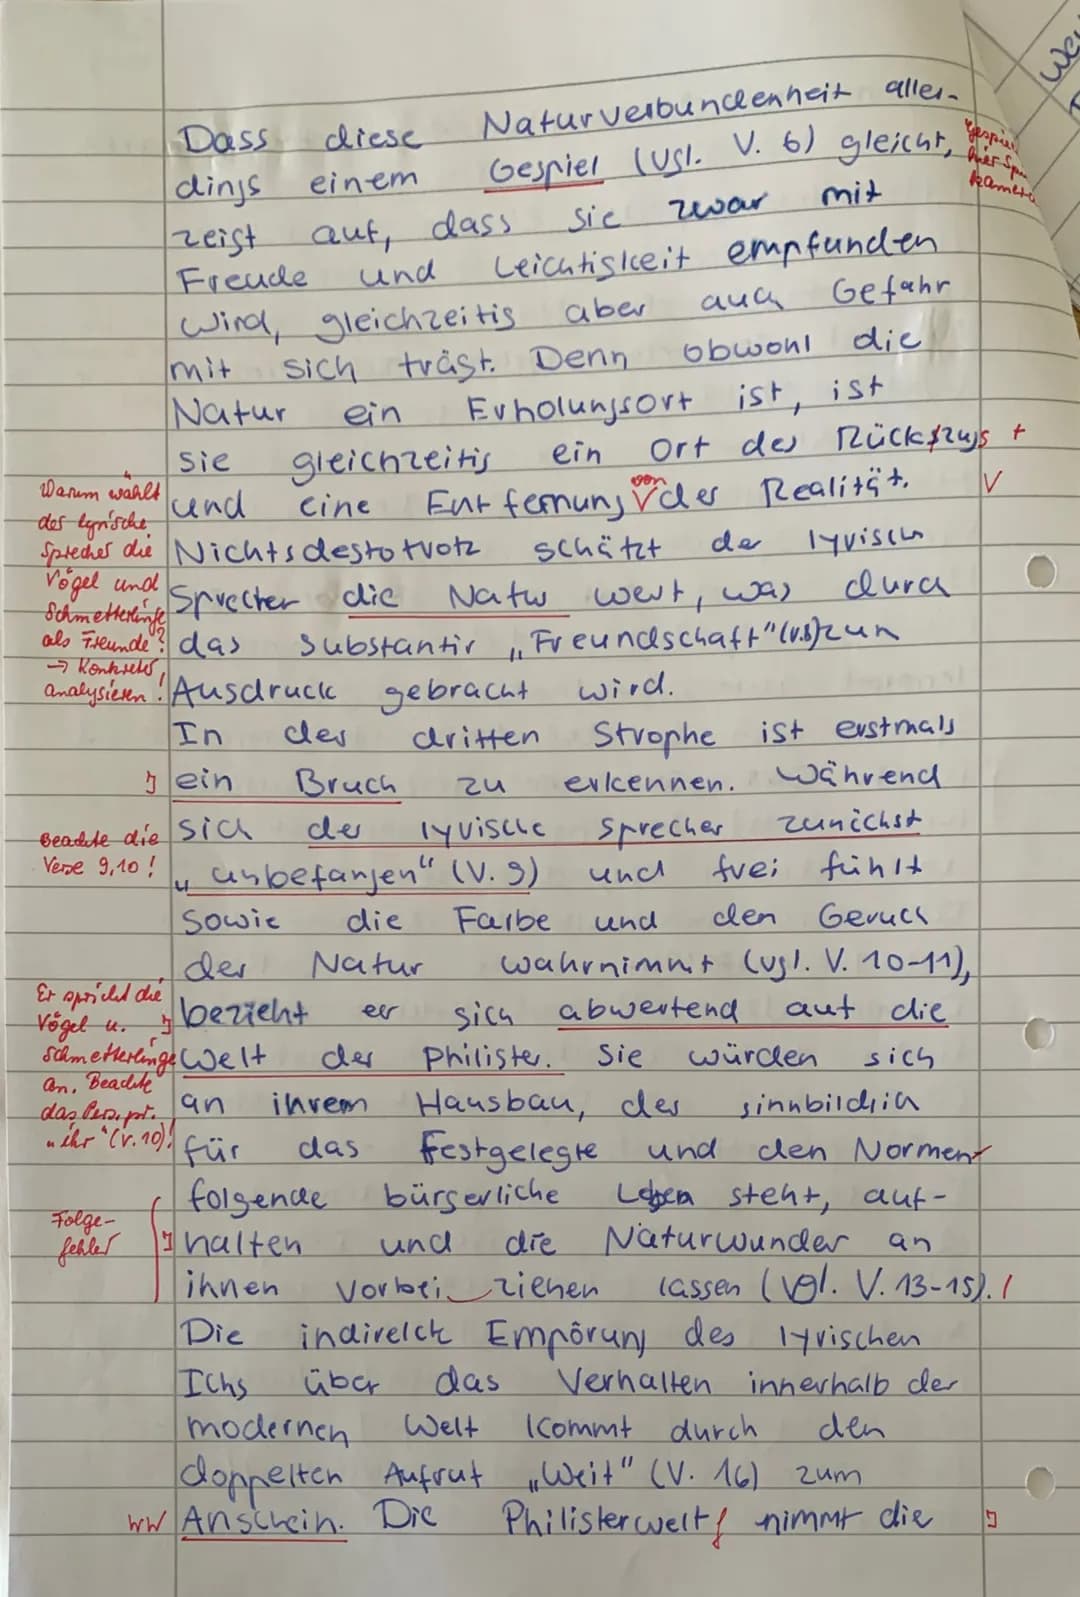 Dass diese Naturverbundenheit aller-
dings einem Gespiel (vgl. V. 6) gleicht,
zeigt auf, dass sie zwar mit
Freude und Leichtigkeit empfunden
wird, gleichzeitig aber auch Gefahr
mit sich trägt. Denn obwohl die
Natur ein Erholungsort ist, ist
sie gleichzeitig ein Ort des Rückzugs +
und eine Entfernung von der Realität. V
Nichtsdestotrotz schätzt der lyrisch
Sprecher die Natur wert, was durch
das Substantiv „Freundschaft" (V.8) zum
Ausdruck gebracht wird.
Warum wählt
der lyrische
Sprecher die
Vögel und
Schmetterlinge
als Freunde?
→ Konkreter
analysieren!
In der dritten Strophe ist erstmals
ein Bruch zu erkennen. Während
sich der lyrische Sprecher zunächst
„unbefangen" (V. 9) und frei fühlt
sowie die Farbe und den Geruch
der Natur wahrnimmt (vgl. V. 10-11),
Beachte die
Verse 9,10!
bezieht er sich abwertend auf die
Welt der Philister. Sie würden sich
an ihrem Hausbau, der sinnbildlich
für das Festgelegte und den Normen
folgende bürgerliche Leben steht, auf-
halten und die Naturwunder an
ihnen vorbei ziehen lassen (vgl. V. 13-15).
Er spricht die
Vögel u.
Schmetterlinge
an. Beachte
das Pers. pr.
„ihr" (V. 10)!
Folge-
fehler
Die indirekt Empörung des lyrischen
Ichs über das Verhalten innerhalb der
modernen Welt kommt durch den
doppelten Aufruf „Weit" (V. 16) zum
WW Anschein. Die Philisterwelt nimmt die
Gespiel
hier